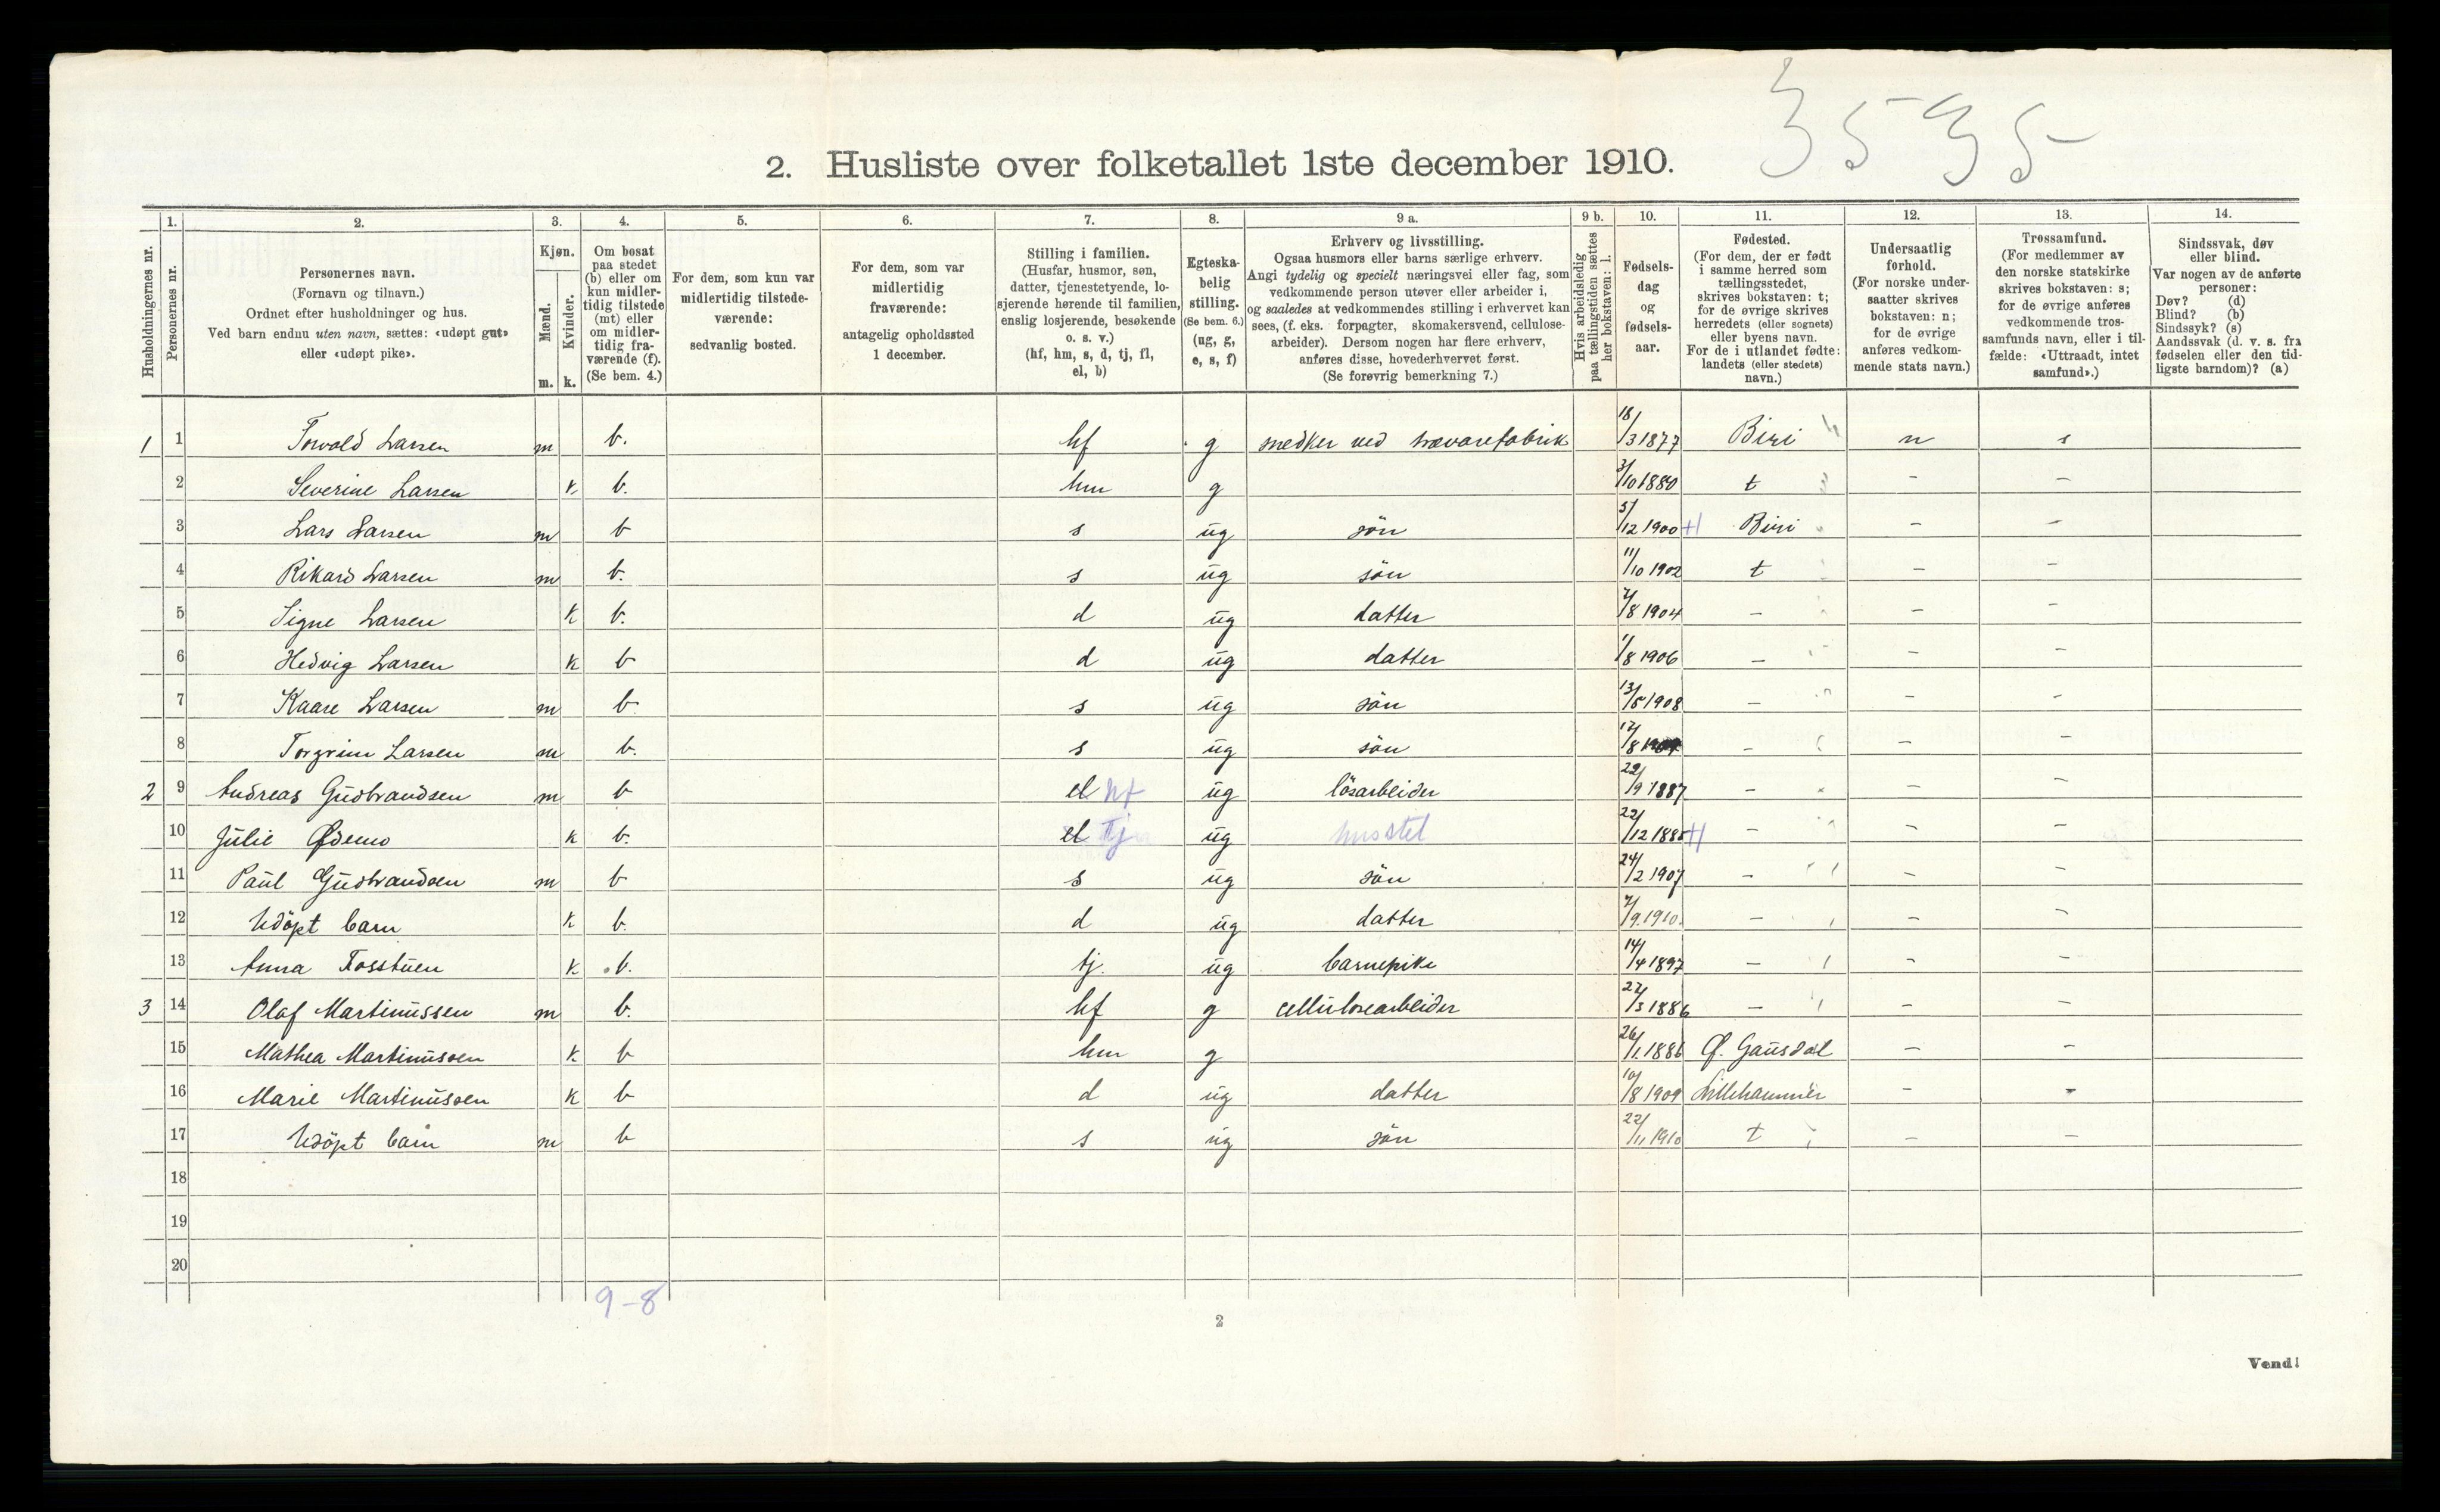 3535
2. Husliste over folketallet 1ste december 1910.
Husholdningernes nr.
1. Personernes nr.
2. Personernes navn. (Fornavn og tilnavn.) Ordnet efter husholdninger og hus. Ved barn endnu uten navn, sættes: «udøpt gut» eller «udøpt pike».
3. Kjøn. Mænd. m. Kvinder. k.
4. Om bosat paa stedet (b) eller om kun midlertidig tilstede (mt) eller om midlertidig fraværende (f). (Se bem. 4.)
5. For dem, som kun var midlertidig tilstedeværende: sedvanlig bosted.
6. For dem, som var midlertidig fraværende: antagelig opholdssted 1 december.
7. Stilling i familien. (Husfar, husmor, søn, datter, tjenestetyende, losjerende hørende til familien, enslig losjerende, besøkende o. s. v.) (hf, hm, s, d, tj, fl, el, b)
8. Egteskabelig stilling. (Se bem. 6.) (ug, g, e, s, f)
9 a. Erhverv og livsstilling. Ogsaa husmors eller barns særlige erhverv. Angi tydelig og specielt næringsvei eller fag, som vedkommende person utøver eller arbeider i, og saaledes at vedkommendes stilling i erhvervet kan sees, (f. eks. forpagter, skomakersvend, cellulosearbeider). Dersom nogen har flere erhverv, anføres disse, hovederhvervet først. (Se forøvrig bemerkning 7.)
9 b. Hvis arbeidsledig paa tællingstiden sættes her bokstaven: l.
10. Fødselsdag og fødselsaar.
11. Fødested. (For dem, der er født i samme herred som tællingsstedet, skrives bokstaven: t; for de øvrige skrives herredets (eller sognets) eller byens navn. For de i utlandet fødte: landets (eller stedets) navn.)
12. Undersaatlig forhold. (For norske undersaatter skrives bokstaven: n; for de øvrige anføres vedkommende stats navn.)
13. Trossamfund. (For medlemmer av den norske statskirke skrives bokstaven: s; for de øvrige anføres vedkommende trossamfunds navn, eller i tilfælde: «Uttraadt, intet samfund».)
14. Sindssvak, døv eller blind. Var nogen av de anførte personer: Døv? (d) Blind? (b) Sindssyk? (s) Aandssvak (d. v. s. fra fødselen eller den tidligste barndom)? (a)
1 1 Torvald Larsen m b. hf g snedker ved trævarefabrik 18/3 1877 Biri n s
2 Severine Larsen k b. hm g 3/10 1880 t - -
3 Lars Larsen m b s ug sön 5/12 1900 Biri - -
4 Rikard Larsen m b. s ug sön 11/10 1902 t - -
5 Signe Larsen k b. d ug datter 8 1904 - - -
6 Hedvig Larsen k b d ug datter 1/8 1906 - - -
7 Kaare Larsen m b s ug sön 13/5 1908 - - -
8 Torgrim Larsen m b. s ug sön 17/8 - - -
2 9 Andreas Gudbrandsen m b el hf ug lösarbeider 22/9 1887 - - -
10 Julie Ødemo k b. el Tj ug husstel 22/12 188 - - -
11 Paul Gudbrandsen m b s ug sön 24/2 1907 - - -
12 Udöpt barn k b. d ug datter 9. 1910. - - -
13 Anna Fosstuen k b. tj. ug barnepike 14/4 1897 - - -
3 14 Olaf Martinussen m b. hf g cellulosearbeider 27/3 1886 - - -
15 Mathea Martinussen k b hm g 26/1. 1886 Ø. Gausdal - -
16 Marie Martinussen k b d ug datter 10/8 1909 Lillehammer - -
17 Udöpt barn m b s ug sön 22/11 1910 t - -
18
19
20
9-8
2
Vend!